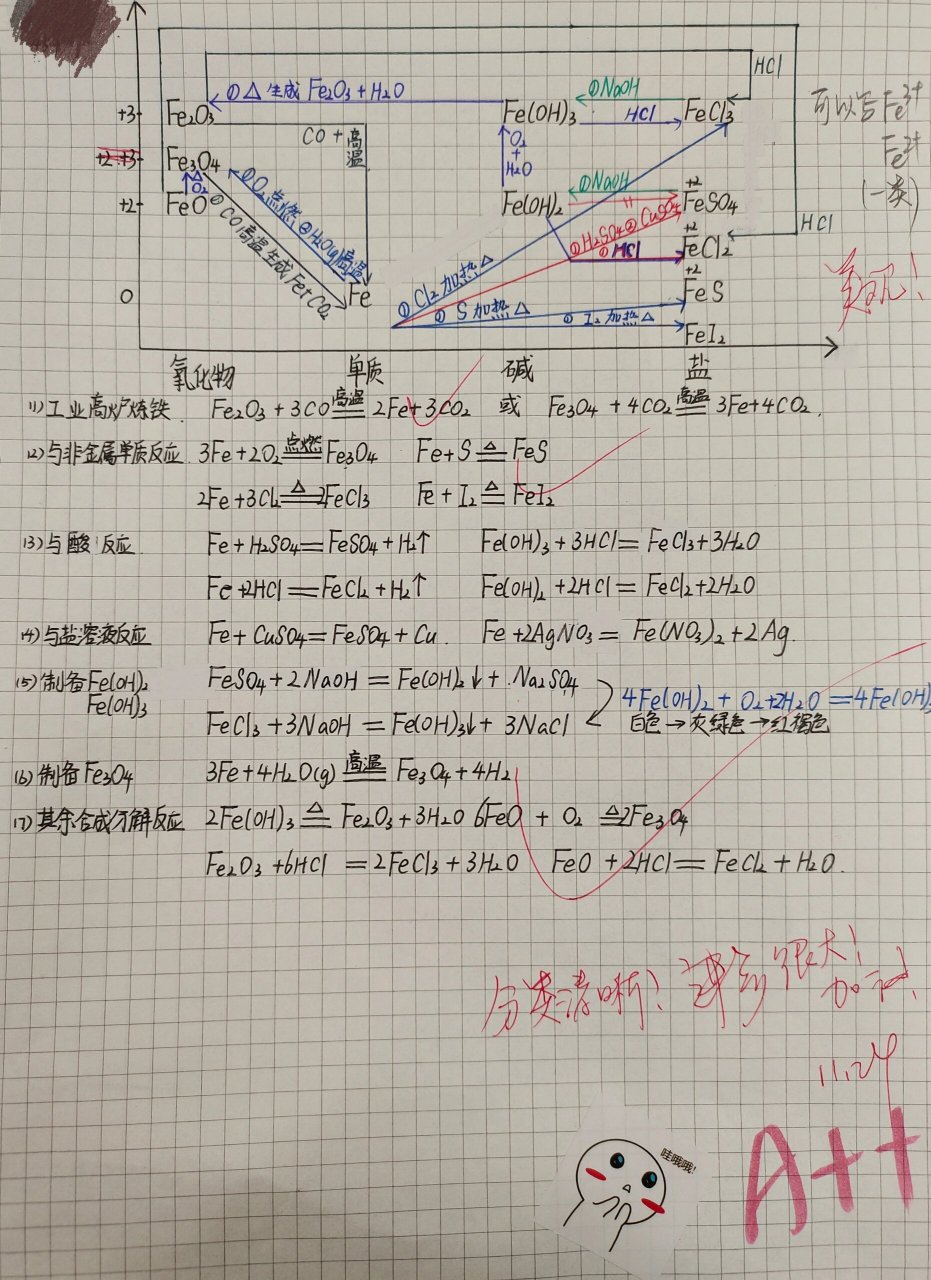 HCl
①△ 生成 Fe₂O₃+H₂O
①NaOH
+3 Fe₂O₃ Fe(OH)₃ HCl FeCl₃
可以写Fe³⁺
CO+高温
O₂+H₂O
Fe²⁺
+2 +3 Fe₃O₄
(一类)
①O₂点燃 ②H₂O(g)高温
△
O₂
①NaOH
+2 FeO Fe(OH)₂ +2 FeSO₄
HCl
①CO高温生成Fe+CO₂
①H₂SO₄ ②CuSO₄
① HCl
+2 FeCl₂
美观!
0 Fe
① Cl₂加热△
+2 FeS
② S 加热△
① I₂ 加热△
FeI₂
氧化物 单质 碱 盐
(1)工业高炉炼铁 Fe₂O₃+3CO高温══2Fe+3CO₂ 或 Fe₃O₄+4CO₂高温══3Fe+4CO₂.
(2)与非金属单质反应. 3Fe+2O₂点燃══Fe₃O₄ Fe+S△══FeS
2Fe+3Cl₂△══2FeCl₃ Fe+I₂△══FeI₂
(3)与酸反应 Fe+H₂SO₄=FeSO₄+H₂↑ Fe(OH)₃+3HCl=FeCl₃+3H₂O
Fe+2HCl=FeCl₂+H₂↑ Fe(OH)₂+2HCl=FeCl₂+2H₂O
(4)与盐溶液反应 Fe+CuSO₄=FeSO₄+Cu. Fe+2AgNO₃=Fe(NO₃)₂+2Ag.
(5)制备Fe(OH)₂ FeSO₄+2NaOH=Fe(OH)₂↓+Na₂SO₄
Fe(OH)₃
4Fe(OH)₂+O₂+2H₂O=4Fe(OH)₃
FeCl₃+3NaOH=Fe(OH)₃↓+3NaCl
白色→灰绿色→红褐色
(6)制备Fe₃O₄ 3Fe+4H₂O(g)高温══Fe₃O₄+4H₂
(7)其余合成分解反应 2Fe(OH)₃△══Fe₂O₃+3H₂O 6FeO+O₂△══2Fe₃O₄
Fe₂O₃+6HCl=2FeCl₃+3H₂O FeO+2HCl=FeCl₂+H₂O.
分类清晰! 进步很大!
加油!
11.24
A++
哇哦哦!